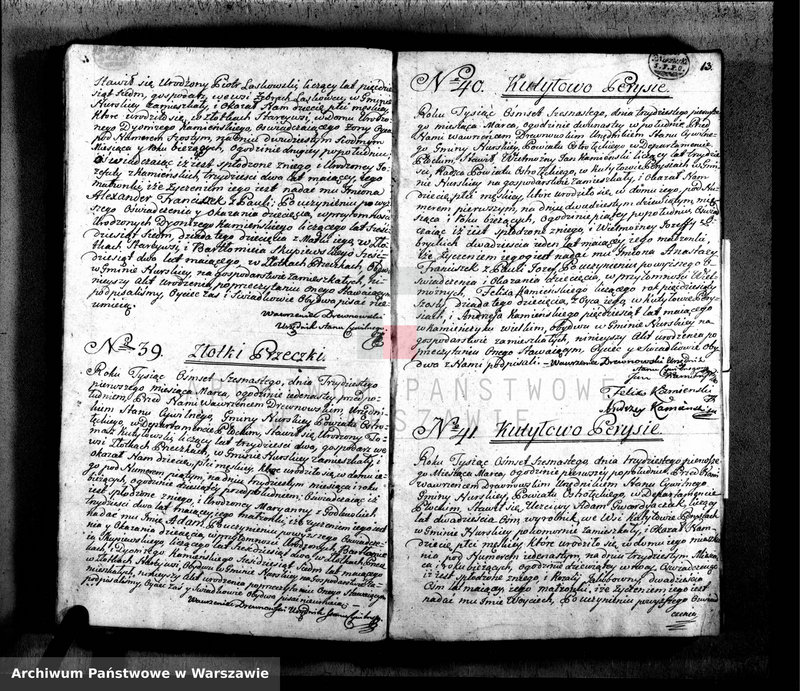 Stawił się Urodzony Piotr Laskowski liczący lat pięćdzie
siąt siedm, gospodarz, we wsi
Nursku zamieszkały, i okazał Nam dziecię płci męskiej,
które urodziło się w Złotkach Starejwsi, w Domu Urodzo
nego Dyonizego Kamieńskiego, oświadczającego żony Oyca
pod Numerem Szóstym, na dniu dwudziestym siódmym
Miesiąca y roku bieżących, o godzinie drugiey popołudniu,
oświadczając iż jest spłodzone z niego i Urodzoney Jo
zefaty z Kamieńskich, trzydzieści dwa lat maiącey, iego
małżonki, i że życzeniem iego iest nadać mu Imiona
Alexander Franciszek z Pauli: Po uczynieniu powyż
szego Oświadczenia y okazaniu dziecięcia, w przytomności
Urodzonych Dyonizego Kamieńskiego liczącego lat sześć
dziesiąt siedm, dziada tego dziecięcia z Matki iego, w Zło
tkach Starejwsi, i Bartłomieia Skupiewskiego sześć
dziesiąt dwa lat maiącego, w Złotkach Przeczkach, Obydwu
w Gminie Nurskiey, na gospodarstwie zamieszkałych, Ni
nieyszy Akt Urodzenia, po przeczytaniu onego Stawaiącym
podpisaliśmy, Oyciec zaś i Świadkowie Obydwa pisać nie
umieią.
Wawrzeniec Drewnowski
Urzędnik Stanu Cywilnego
Nro 39. Złotki Przeczki.
Roku Tysiąc Osmset Szesnastego, dnia Trzydziestego
pierwszego miesiąca Marca, o godzinie iedenastey przed po
łudniem, Przed Nami Wawrzeńcem Drewnowskim Urzędni
kiem Stanu Cywilnego, Gminy Nurskiey Powiatu Ostro
łęckiego, w Departamencie Płockim, Stawił się Urodzony To
masz Kutyłowski, liczący lat trzydzieści dwa, gospodarz we
wsi Złotkach Przeczkach, w Gminie Nurskiey Zamieszkały, i
okazał Nam dziecię, płci męskiey, które urodziło się w domu ie
go pod Numerem piątym, na dniu trzydziestym miesiąca i roku
bieżących, o godzinie dziewiątey przedpołudniem; Oświadczaiąc iż
iest spłodzone z niego, i Urodzoney Maryanny z Godlewskich
trzydzieści dwa lat maiącey iego małżonki, i że życzeniem iego iest
nadać mu Imię Adam. Po uczynieniu powyższego Oświadcze
nia y Okazaniu dziecięcia, w przytomności Urodzonych Bartłomie
ia Skupiewskiego liczącego lat sześćdziesiąt dwa, w Złotkach Przecz
kach, i Dyonizego Kamieńskiego sześćdziesiąt siedm lat maiącego
w Złotkach Starejwsi, Obydwu w Gminie Nurskiey na Gospodarstwie Za
mieszkałych, ninieyszy Akt urodzenia po przeczytaniu onego Stawaiącym
podpisaliśmy, Oyciec zaś y Świadkowie Obydwa pisać nieumieią.
Wawrzeniec Drewnowski Urzędnik Stanu Cywilnego
13.
Nro 40. Kutyłowo Perysie.
Roku Tysiąc Osmset Szesnastego, dnia trzydziestego pierwsze
go miesiąca Marca, o godzinie dwunastey w południe, Przed
Nami Wawrzeńcem Drewnowskim Urzędnikiem Stanu Cywilne
go Gminy Nurskiey Powiatu Ostrołęckiego, w Departamencie
Płockim, Stawił się Wielmożny Jan Kamieński liczący lat trzydzie
ści, Radzca Powiatu Ostrołęckiego, w Kutyłowie Perysiach w Gmi
nie Nurskiey na gospodarstwie zamieszkały, i okazał Nam
Dziecię płci męskiey, które urodziło się w domu iego, pod Nu
merem pierwszym, na dniu dwudziestym dziewiątym mie
siąca i roku bieżących, o godzinie piątey popołudniu, Oświad
czaiąc iż iest spłodzone z niego, i Wielmożney Jozeffy z
dwadzieścia ieden lat maiącey, iego małżonki,
i że życzeniem iego iest nadać mu Imiona Anastazy
Franciszek z Pauli Jozef. Po uczynieniu powyższego O
świadczenia i Okazaniu dziecięcia, w przytomności Wiel
możnych Felixa Kamieńskiego liczącego rok pięćdziesiąty
szósty, dziada tego dziecięcia, z Oyca iego, w Kutyłowie Pery
siach, i Andrzeia Kamieńskiego pięćdziesiąt lat maiącego
w Kamieńczyku wielkim, obydwu w Gminie Nurskiey na
gospodarstwie zamieszkałych, ninieyszy Akt urodzenia po
przeczytaniu Onego Stawaiącym, Oyciec y Świadkowie Oby
dwa z Nami podpisali. Wawrzeniec Drewnowski Urzędnik
Stanu Cywilnego
Jan Kamiński
Felix Kamienski
Andrzy Kamienski
Nro 41 Kutyłowo Perysie.
Roku Tysiąc Osmset Szesnastego, dnia trzydziestego pierwsze
go Miesiąca Marca, o godzinie pierwszey popołudniu, Przed Nami
Wawrzeńcem Drewnowskim Urzędnikiem Stanu Cywilnego
Gminy Nurskiey Powiatu Ostrołęckiego, w Departamencie
Płockim, Stawił się Uczciwy Adam Gwardyaczek, liczący
lat dwadzieścia osm wyrobnik, we Wsi Kutyłowie Perysiach
w Gminie Nurskiey pokomornie Zamieszkały, i Okazał Nam
Dziecię płci męskiey które urodziło się w domu iego mieszka
nia pod Numerem iedenastym, na dniu trzydziestym Miesią
ca i roku bieżących, o godzinie dziewiątey w nocy, Oświadczaiąc
iż iest spłodzone z niego, i Rozalij dwadzieścia
osm lat maiącey, iego małżonki, i że życzeniem iego iest
nadać mu Imie Woyciech, Po uczynieniu powyższego Oświad
czenia
ARCHIWUM PAŃSTWOWE
W WARSZAWIE
Archiwum Państwowe w Warszawie